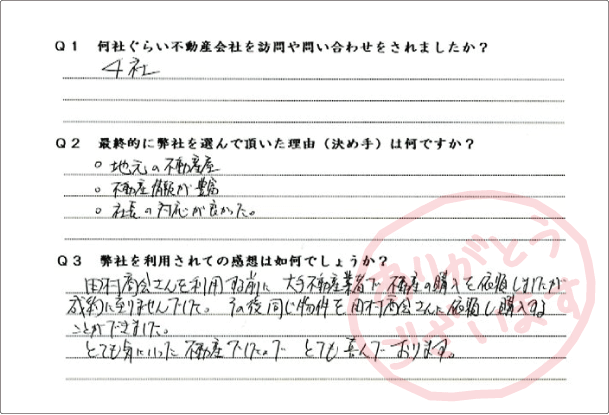 Q1 何社ぐらい不動産会社を訪問や問い合わせをされましたか？
4社
Q2 最終的に弊社を選んで頂いた理由（決め手）は何ですか？
○ 地元の不動産屋
○ 不動産情報が豊富
○ 社長の対応が良かった。
Q3 弊社を利用されての感想は如何でしょうか？
田村商会さんを利用する前に 大手不動産業者で 不動産の購入を依頼しましたが
成約に至りませんでした。 その後同じ物件を田村商会さんに依頼し購入する
ことができました。
とても気にいった不動産でしたので とても喜んでおります。
ありがとう
ございます